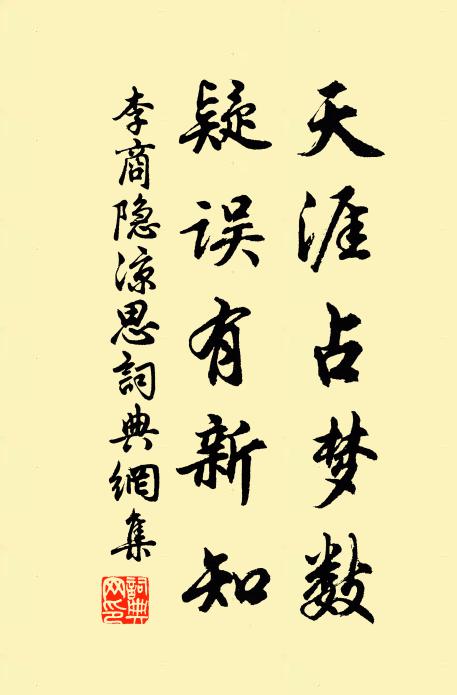 天涯占梦数
疑误有新知
李商隐凉思詞典網集
詞典网印